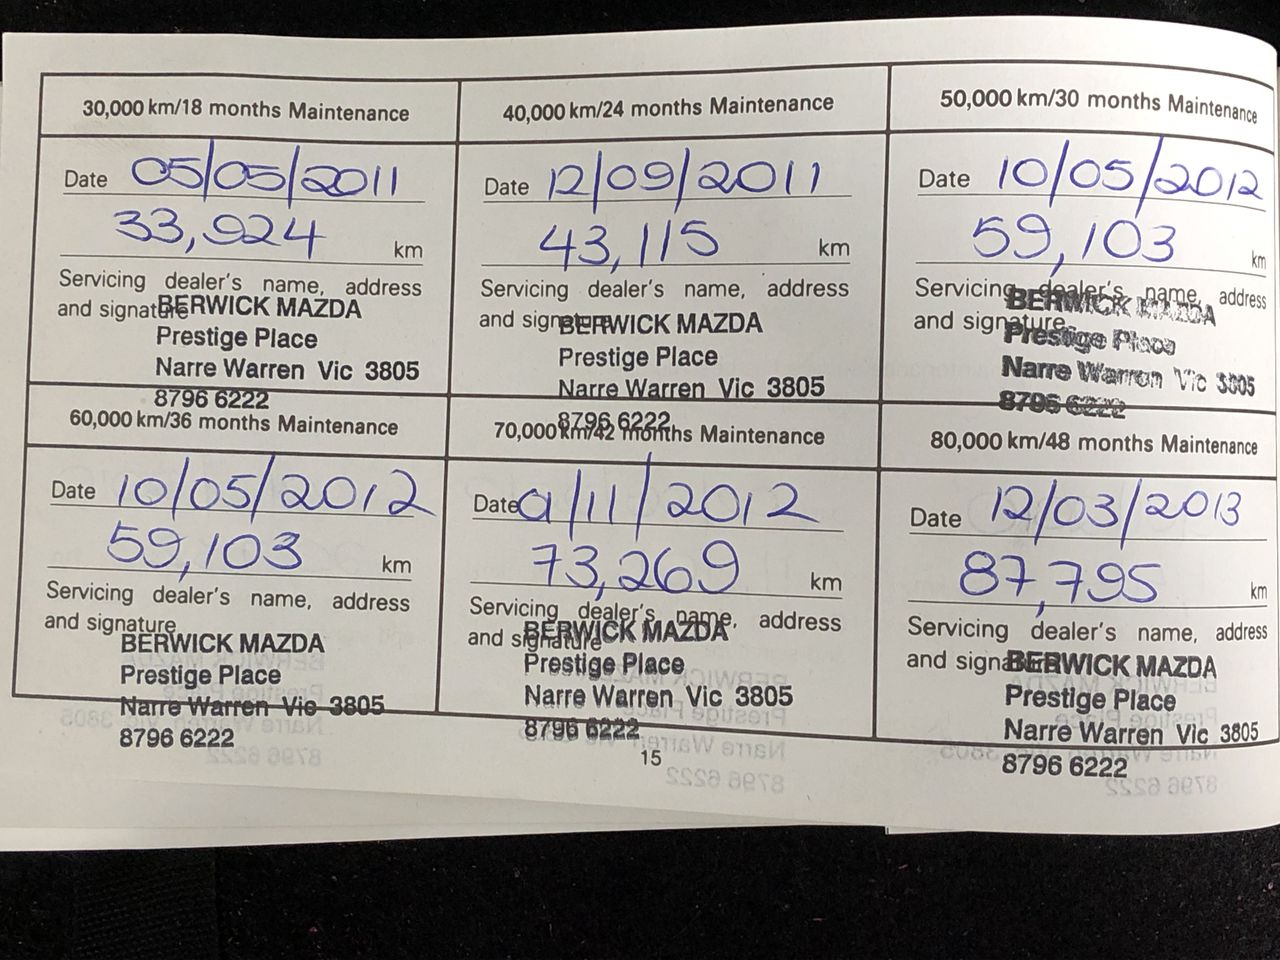 30,000 km/18 months Maintenance
Date 05/05/2011
33,924 km
Servicing dealer's name, address
and signature
BERWICK MAZDA
Prestige Place
Narre Warren Vic 3805
8796 6222
40,000 km/24 months Maintenance
Date 12/09/2011
43,115 km
Servicing dealer's name, address
and signature
BERWICK MAZDA
Prestige Place
Narre Warren Vic 3805
8796 6222
50,000 km/30 months Maintenance
Date 10/05/2012
59,103 km
Servicing dealer's name, address
and signature
BERWICK MAZDA
Prestige Place
Narre Warren Vic 3805
8796 6222
60,000 km/36 months Maintenance
Date 10/05/2012
59,103 km
Servicing dealer's name, address
and signature
BERWICK MAZDA
Prestige Place
Narre Warren Vic 3805
8796 6222
70,000 km/42 months Maintenance
Date 01/11/2012
73,269 km
Servicing dealer's name, address
and signature
BERWICK MAZDA
Prestige Place
Narre Warren Vic 3805
8796 6222
80,000 km/48 months Maintenance
Date 12/03/2013
87,795 km
Servicing dealer's name, address
and signature
BERWICK MAZDA
Prestige Place
Narre Warren Vic 3805
8796 6222
15